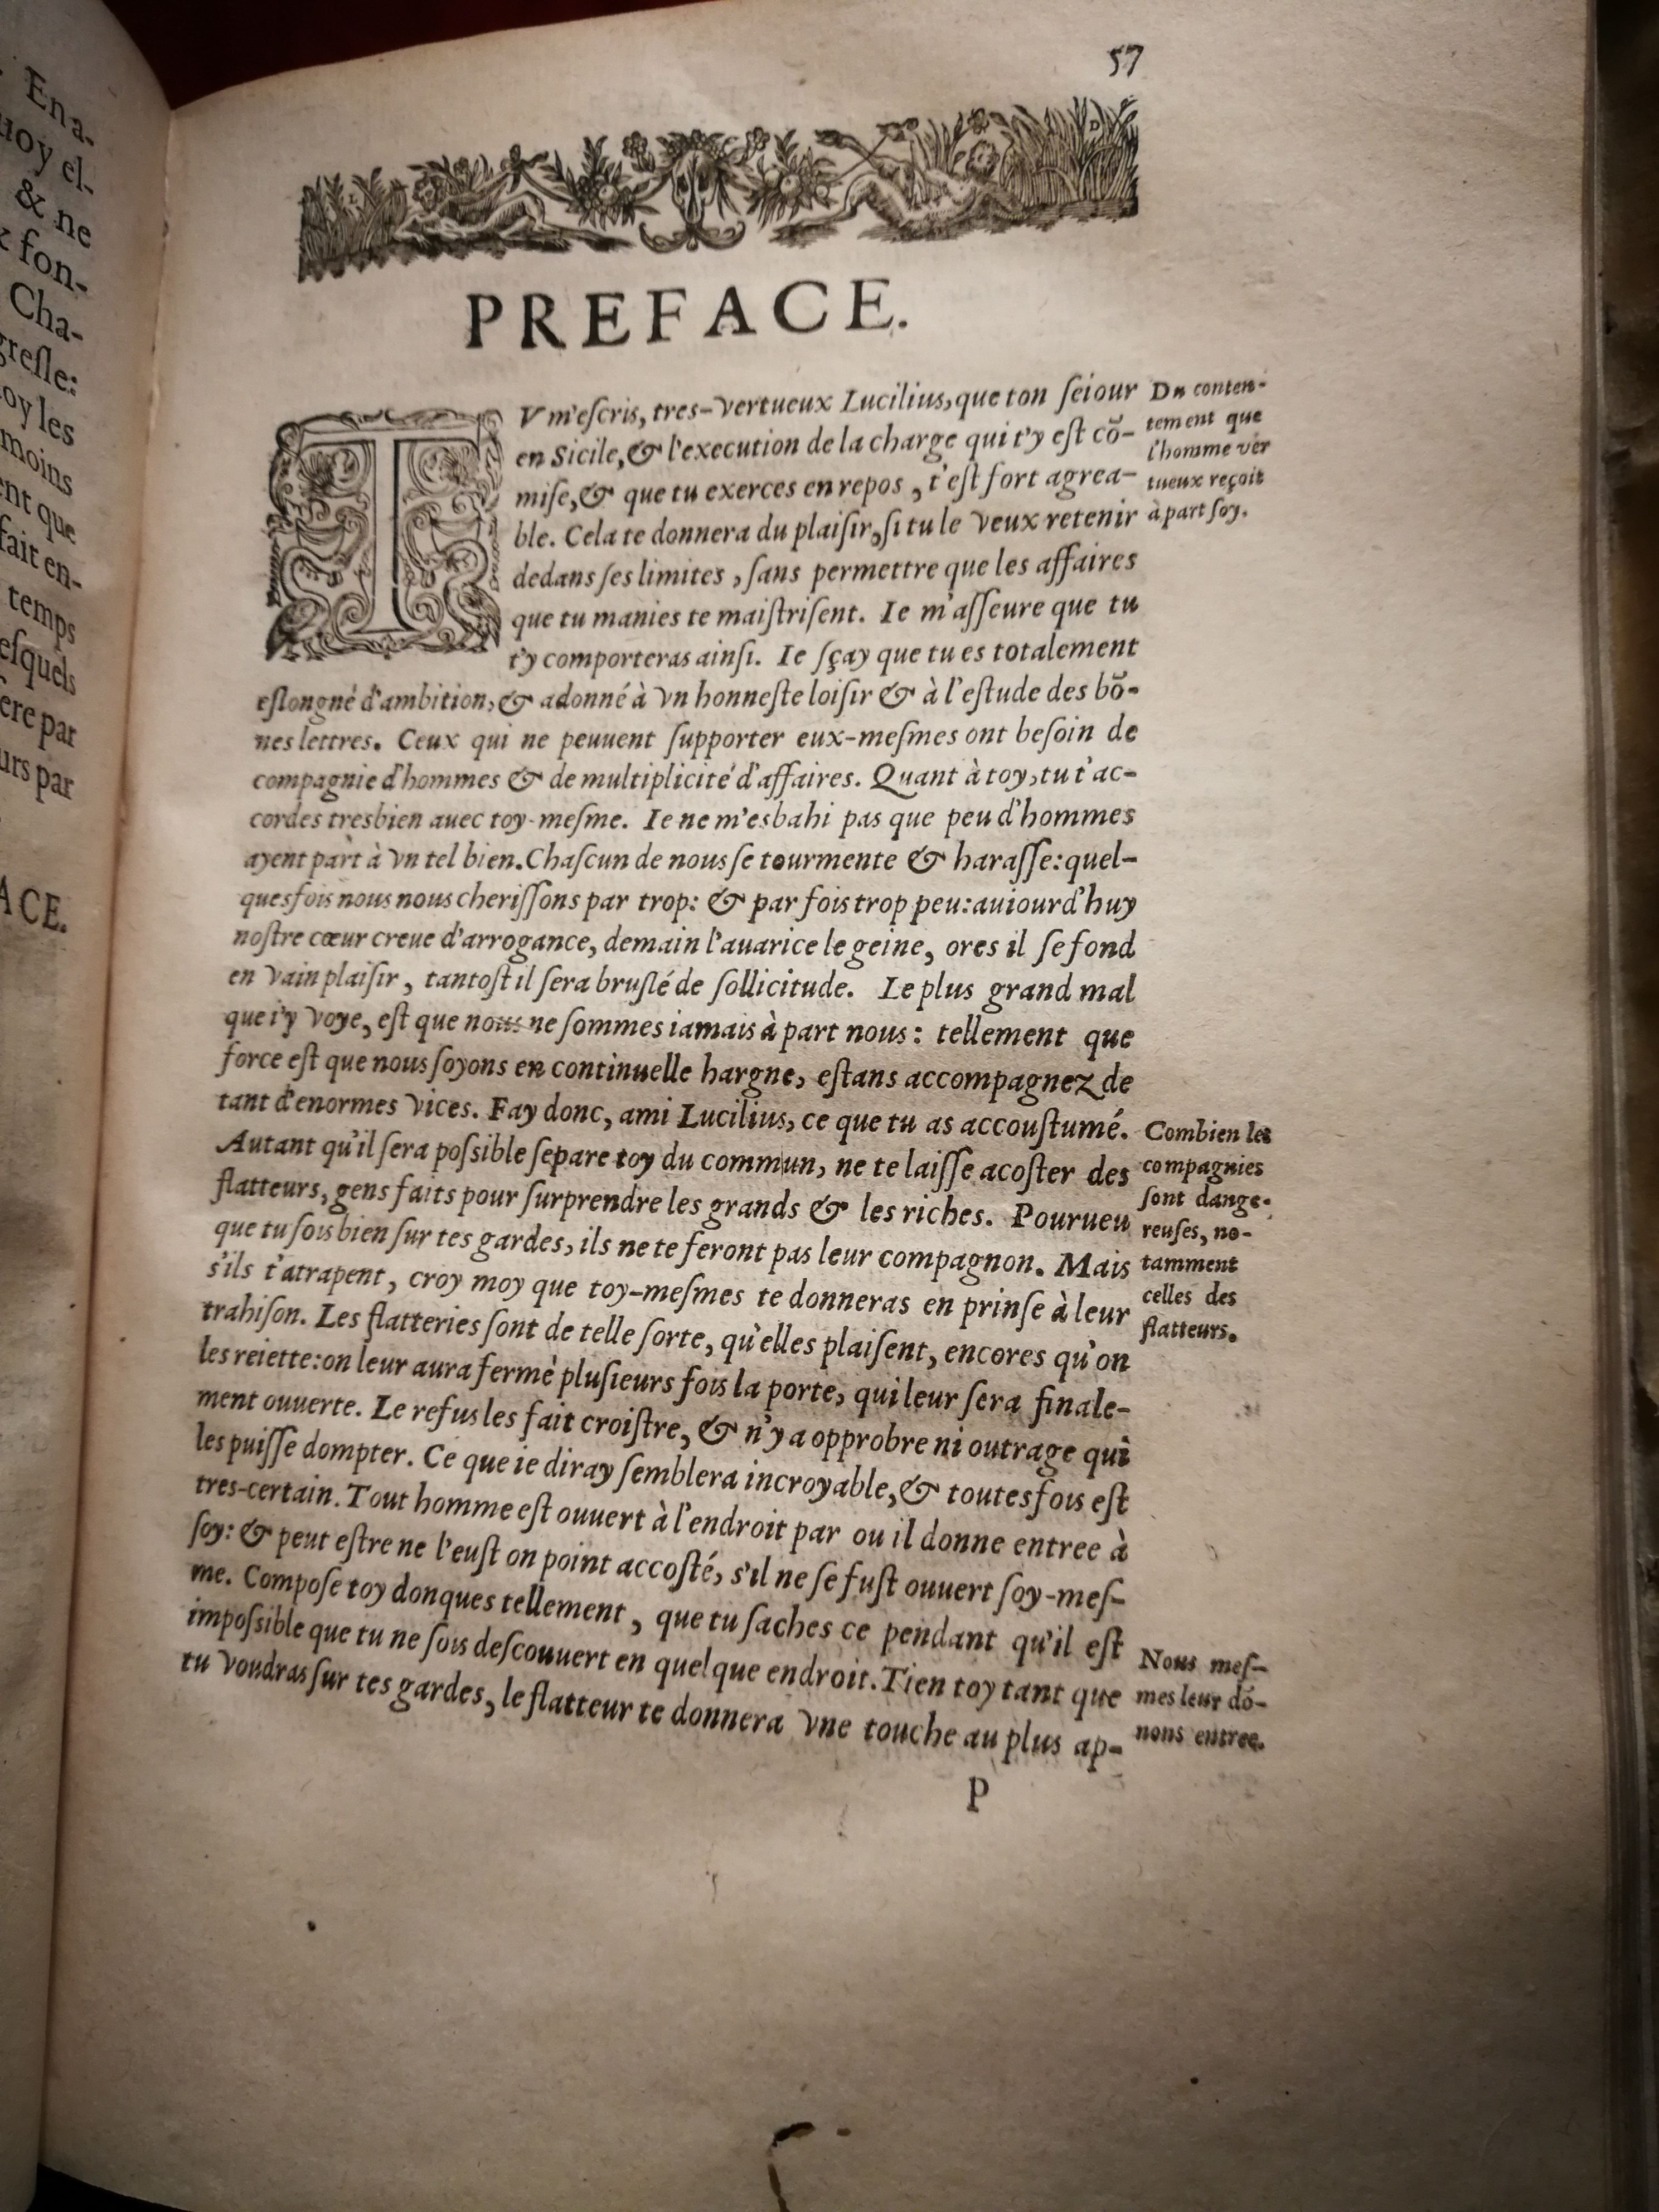 Ena-
uoy el-
& ne
fon-
Cha-
greſle:
oy les
moins
ent que
fait en-
temps
eſquels
ere par
urs par
ACE.
57
PREFACE.
TV m'eſcris, tres-vertueux Lucilius, que ton ſeiour
en Sicile, & l'execution de la charge qui t'y eſt cõ-
miſe, & que tu exerces en repos, t'eſt fort agrea-
ble. Cela te donnera du plaiſir, ſi tu le veux retenir
dedans ſes limites, ſans permettre que les affaires
que tu manies te maiſtriſent. Ie m'aſſeure que tu
t'y comporteras ainſi. Ie ſçay que tu es totalement
eſlongné d'ambition, & adonné à vn honneſte loiſir & à l'eſtude des bõ-
nes lettres. Ceux qui ne peuuent ſupporter eux-meſmes ont beſoin de
compagnie d'hommes & de multiplicité d'affaires. Quant à toy, tu t'ac-
cordes tresbien auec toy-meſme. Ie ne m'esbahi pas que peu d'hommes
ayent part à vn tel bien. Chaſcun de nous ſe tourmente & haraſſe: quel-
quesfois nous nous cheriſſons par trop: & par fois trop peu: auiourd'huy
noſtre cœur creue d'arrogance, demain l'auarice le geine, ores il ſe fond
en vain plaiſir, tantoſt il ſera bruſlé de ſollicitude. Le plus grand mal
que i'y voye, eſt que nous ne ſommes iamais à part nous: tellement que
force eſt que nous ſoyons en continuelle hargne, eſtans accompagnez de
tant d'enormes vices. Fay donc, ami Lucilius, ce que tu as accouſtumé.
Autant qu'il ſera poſſible ſepare toy du commun, ne te laiſſe acoſter des
flatteurs, gens faits pour ſurprendre les grands & les riches. Pourueu
que tu ſois bien ſur tes gardes, ils ne te feront pas leur compagnon. Mais
s'ils t'atrapent, croy moy que toy-meſmes te donneras en prinſe à leur
trahiſon. Les flatteries ſont de telle ſorte, qu'elles plaiſent, encores qu'on
les reiette: on leur aura fermé pluſieurs fois la porte, qui leur ſera finale-
ment ouuerte. Le refus les fait croiſtre, & n'y a opprobre ni outrage qui
les puiſſe dompter. Ce que ie diray ſemblera incroyable, & toutesfois eſt
tres-certain. Tout homme eſt ouuert à l'endroit par ou il donne entree à
ſoy: & peut eſtre ne l'euſt on point accoſté, s'il ne ſe fuſt ouuert ſoy-meſ-
me. Compoſe toy donques tellement, que tu ſaches ce pendant qu'il eſt
impoſſible que tu ne ſois deſcouuert en quelque endroit. Tien toy tant que
tu voudras ſur tes gardes, le flatteur te donnera vne touche au plus ap-
P
Du conten-
tement que
l'homme ver
tueux reçoit
à part ſoy.
Combien les
compagnies
ſont dange-
reuſes, no-
tamment
celles des
flatteurs.
Nous meſ-
mes leur dõ-
nons entree.